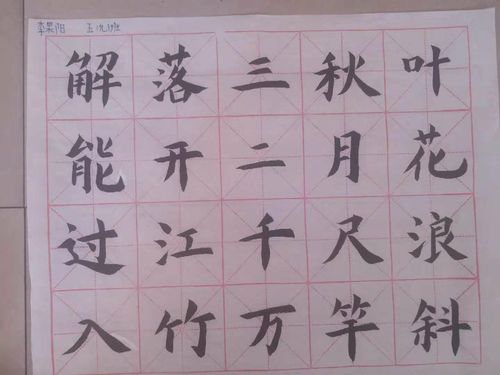 李昊阳 五九班
解落三秋叶
能开二月花
过江千尺浪
入竹万竿斜